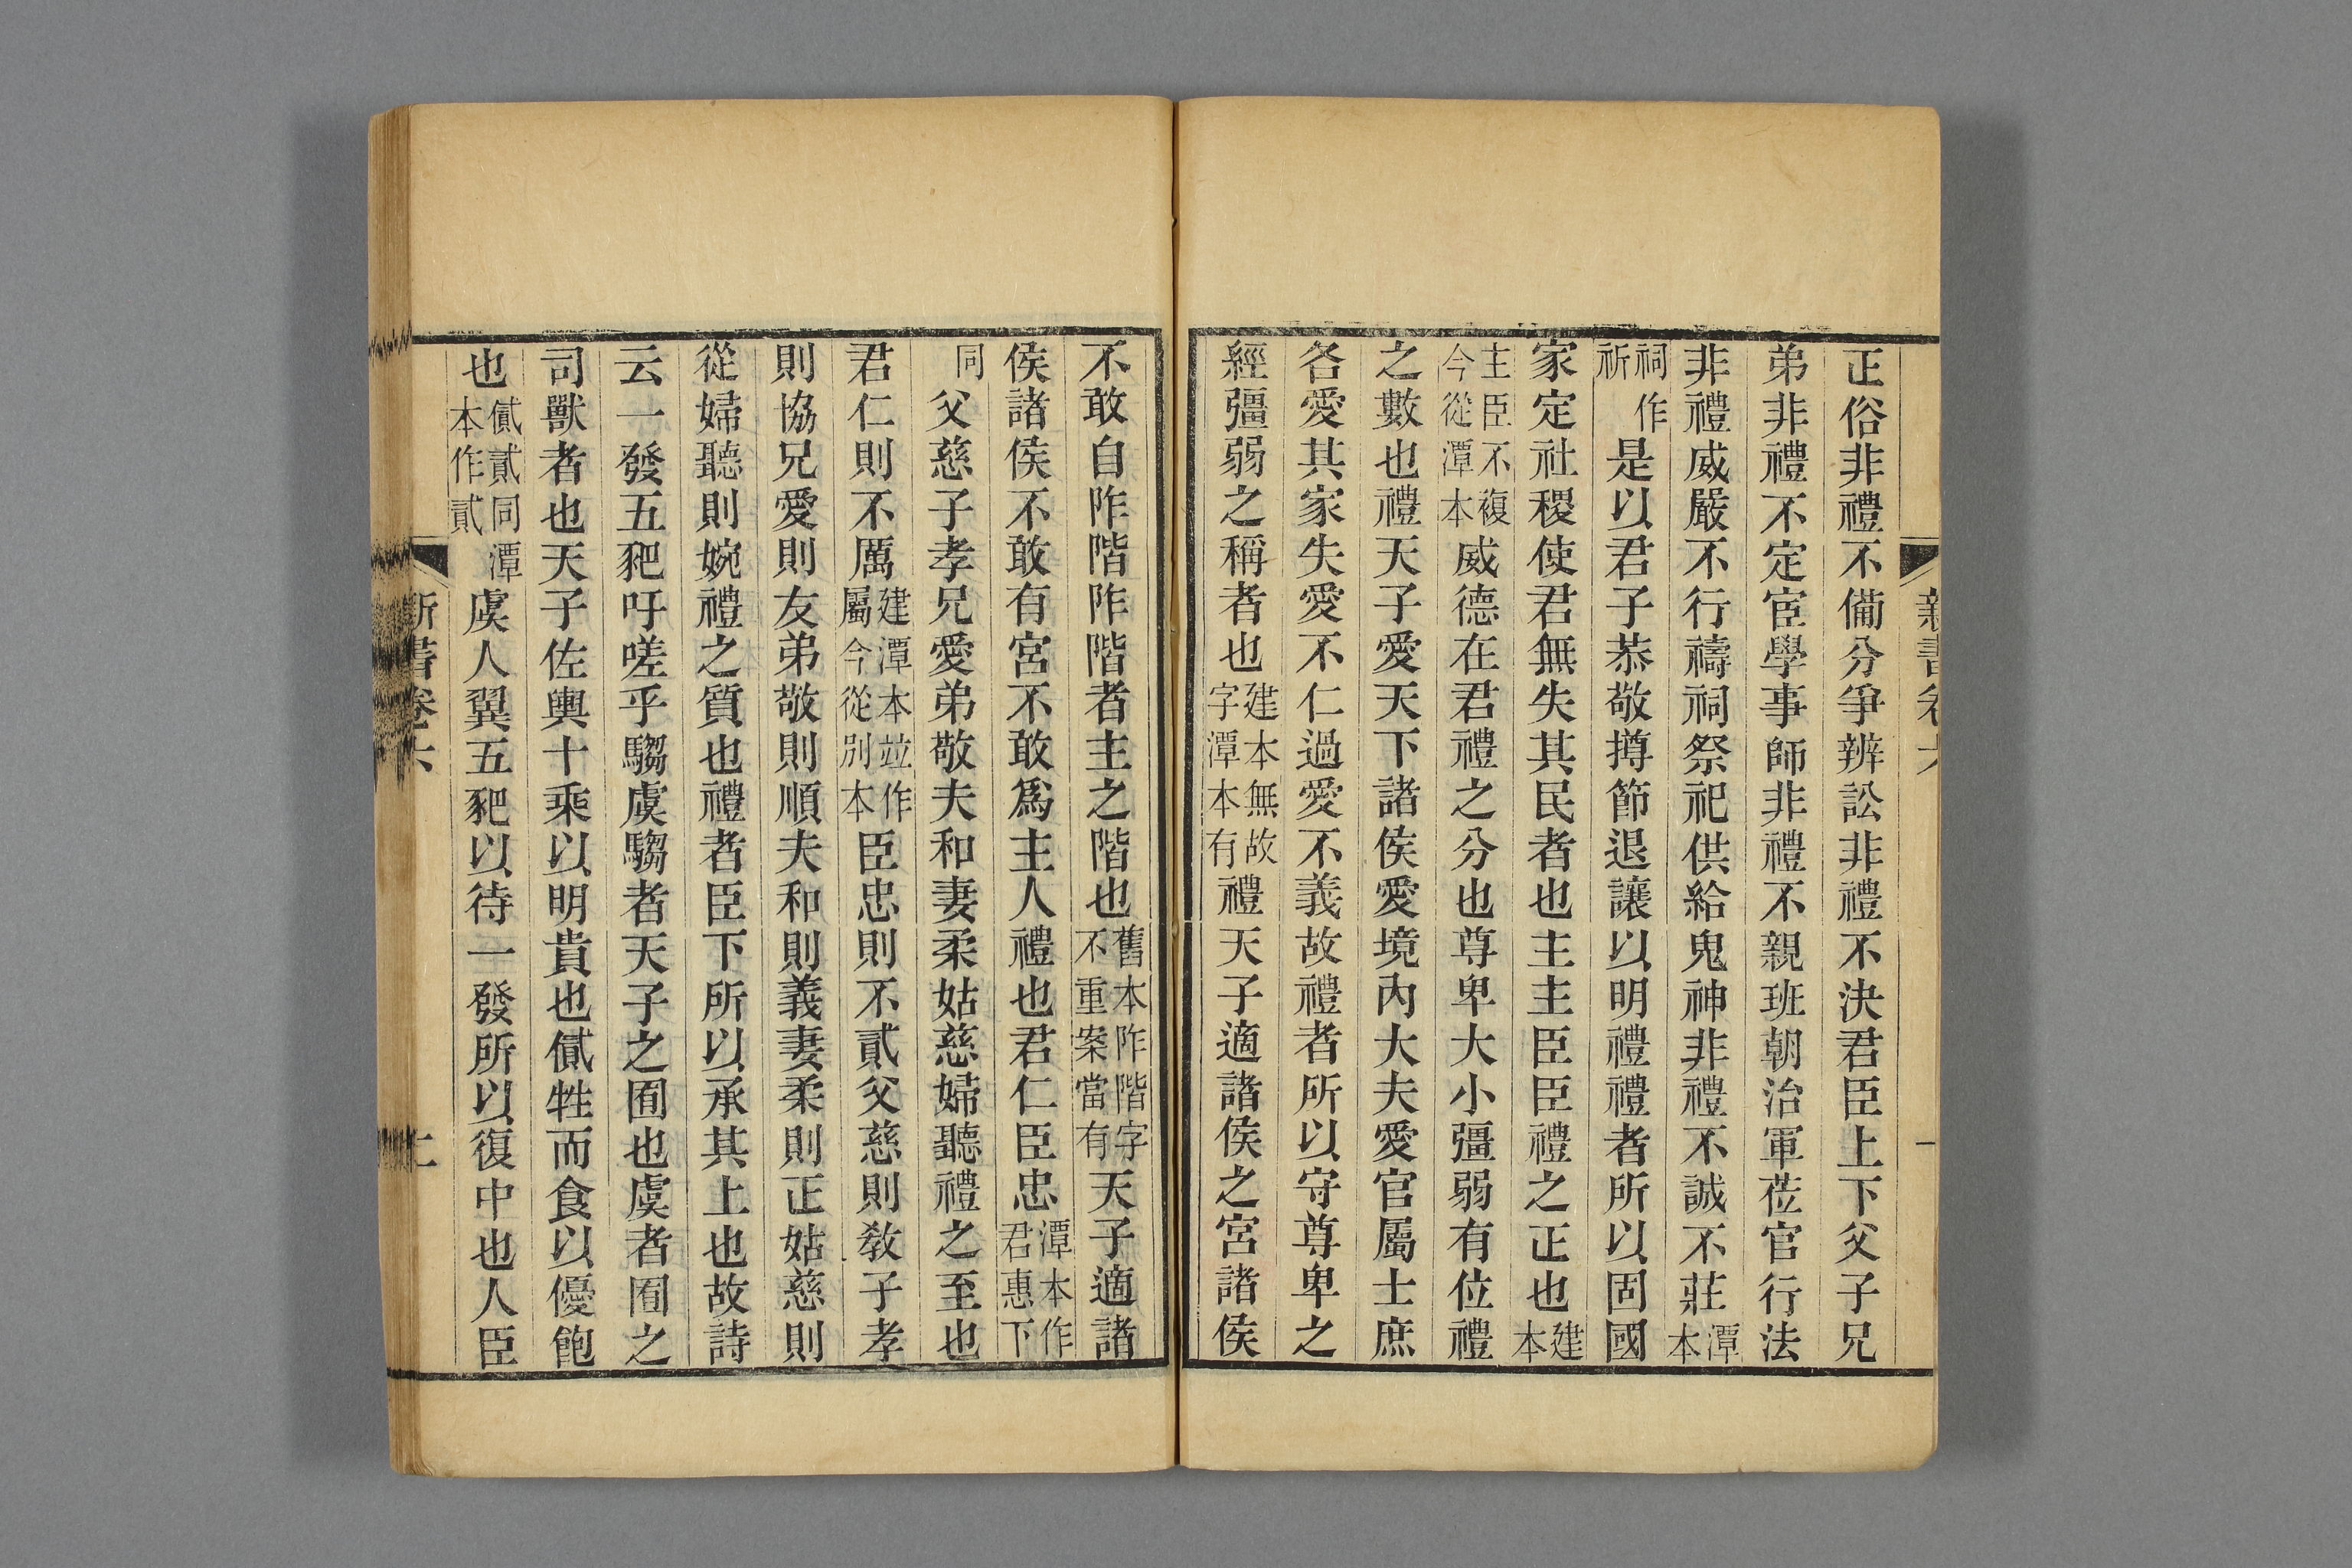 正俗非禮不備分爭辨訟非禮不決君臣上下父子兄
弟非禮不定宦學事師非禮不親班朝治軍莅官行法
非禮威嚴不行禱祠祭祀供給鬼神非禮不誠不莊潭本
祠作祈是以君子恭敬撙節退讓以明禮禮者所以固國
家定社稷使君無失其民者也主主臣臣禮之正也建本
主臣不複今從潭本威德在君禮之分也尊卑大小彊弱有位禮
之數也禮天子愛天下諸侯愛境內大夫愛官屬士庶
各愛其家失愛不仁過愛不義故禮者所以守尊卑之
經彊弱之稱者也建本無故字潭本有禮天子適諸侯之宮諸侯
不敢自阼階阼階者主之階也舊本阼階字不重案當有天子適諸
侯諸侯不敢有宮不敢爲主人禮也君仁臣忠潭本作君惠下
同父慈子孝兄愛弟敬夫和妻柔姑慈婦聽禮之至也
君仁則不厲建潭本竝作屬今從別本臣忠則不貳父慈則教子孝
則協兄愛則友弟敬則順夫和則義妻柔則正姑慈則
從婦聽則婉禮之質也禮者臣下所以承其上也故詩
云一發五豝吁嗟乎騶虞騶者天子之囿也虞者囿之
司獸者也天子佐輿十乘以明貴也貳牲而食以優飽
也貳貳同潭本作貳虞人翼五豝以待一發所以復中也人臣
新書卷六